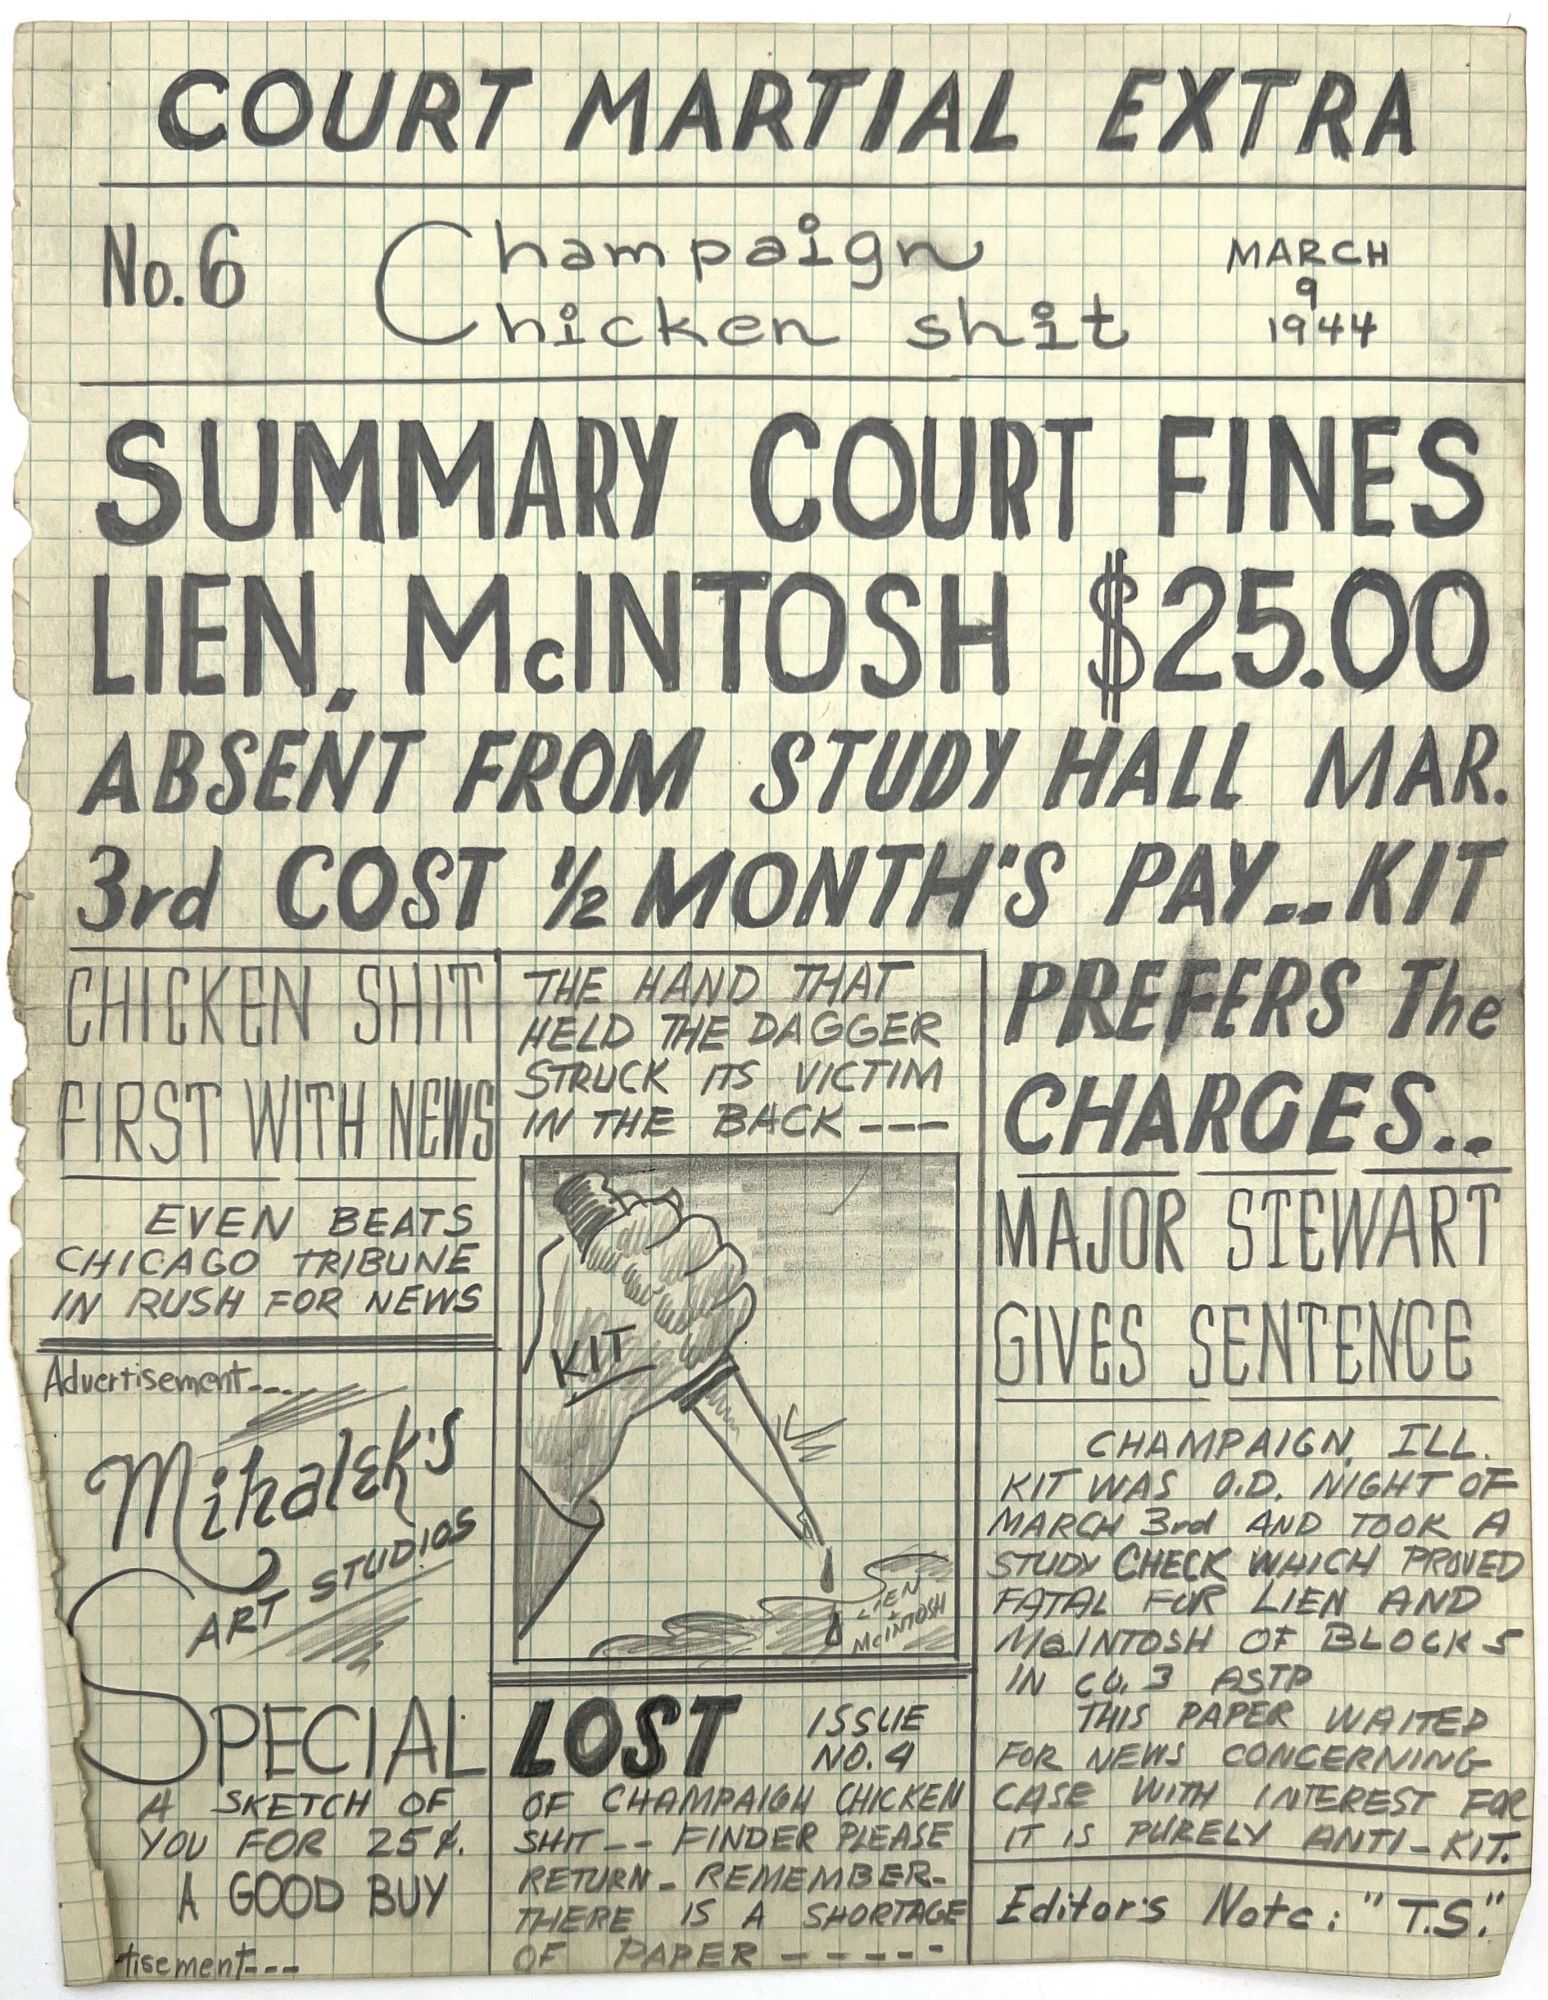 COURT MARTIAL EXTRA
No. 6
Champaign
Chicken shit
MARCH
9
1944
SUMMARY COURT FINES
LIEN, McINTOSH $25.00
ABSENT FROM STUDY HALL MAR.
3rd COST 1/2 MONTH'S PAY..KIT
PREFERS The
CHARGES..
CHICKEN SHIT
FIRST WITH NEWS
EVEN BEATS
CHICAGO TRIBUNE
IN RUSH FOR NEWS
Advertisement----
Mihalek's
ART STUDIOS
SPECIAL
A SKETCH OF
YOU FOR 25¢.
A GOOD BUY
tisement---
THE HAND THAT
HELD THE DAGGER
STRUCK ITS VICTIM
IN THE BACK ---
KIT
LIEN
+
McINTOSH
LOST
ISSUE
NO. 4
OF CHAMPAIGH CHICKEN
SHIT-- FINDER PLEASE
RETURN- REMEMBER-
THERE IS A SHORTAGE
OF PAPER -----
MAJOR STEWART
GIVES SENTENCE
CHAMPAIGN, ILL.
KIT WAS O.D. NIGHT OF
MARCH 3rd AND TOOK A
STUDY CHECK WHICH PROVED
FATAL FOR LIEN AND
McINTOSH OF BLOCK 5
IN CO. 3 ASTP
THIS PAPER WAITED
FOR NEWS CONCERNING
CASE WITH INTEREST FOR
IT IS PURELY ANTI-KIT.
Editor's Note: "T.S."